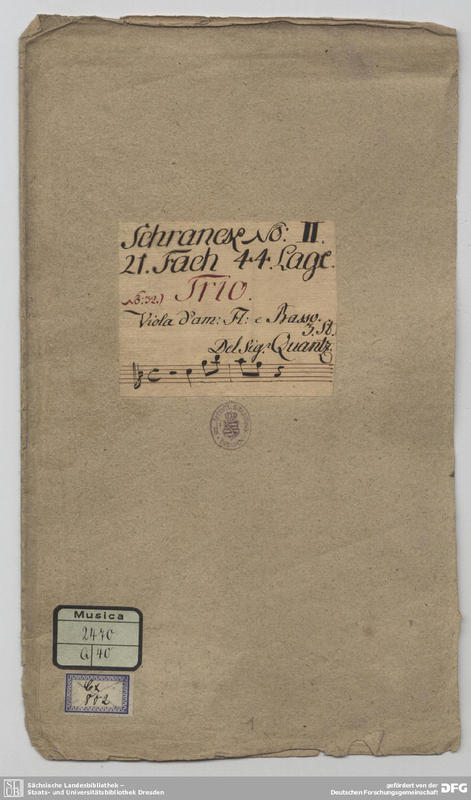 Schranck No: II.
21. Fach 44. Lage.
No: 32.) Trio.
Viola d'am: Fl: e Basso.
3. St.
Del Sigr. Quantz.
Musica
2470
Q/40
Cx
802
1
Sächsische Landesbibliothek –
Staats- und Universitätsbibliothek Dresden
gefördert von der
Deutschen Forschungsgemeinschaft
DFG